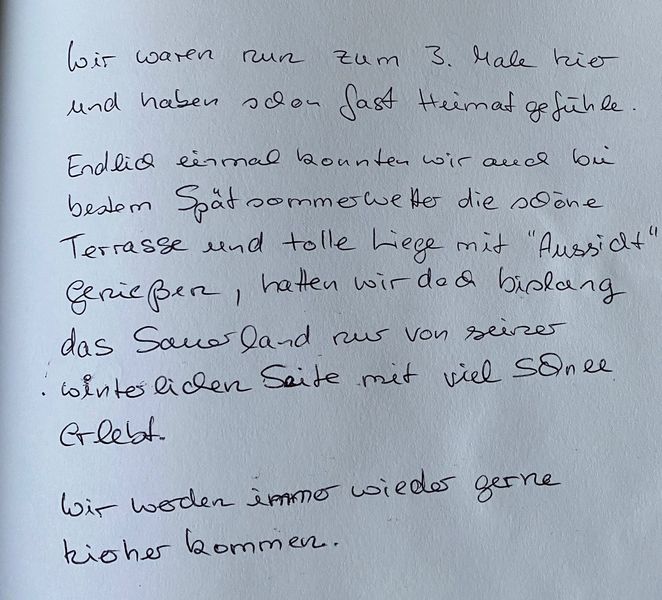 Wir waren nun zum 3. Male hier
und haben schon fast Heimatgefühle.
Endlich einmal konnten wir auch bei
bestem Spätsommerwetter die schöne
Terrasse und tolle Liege mit "Aussicht"
genießen, hatten wir doch bislang
das Sauerland nur von seiner
winterlichen Seite mit viel Schnee
erlebt.
Wir werden immer wieder gerne
hierher kommen.